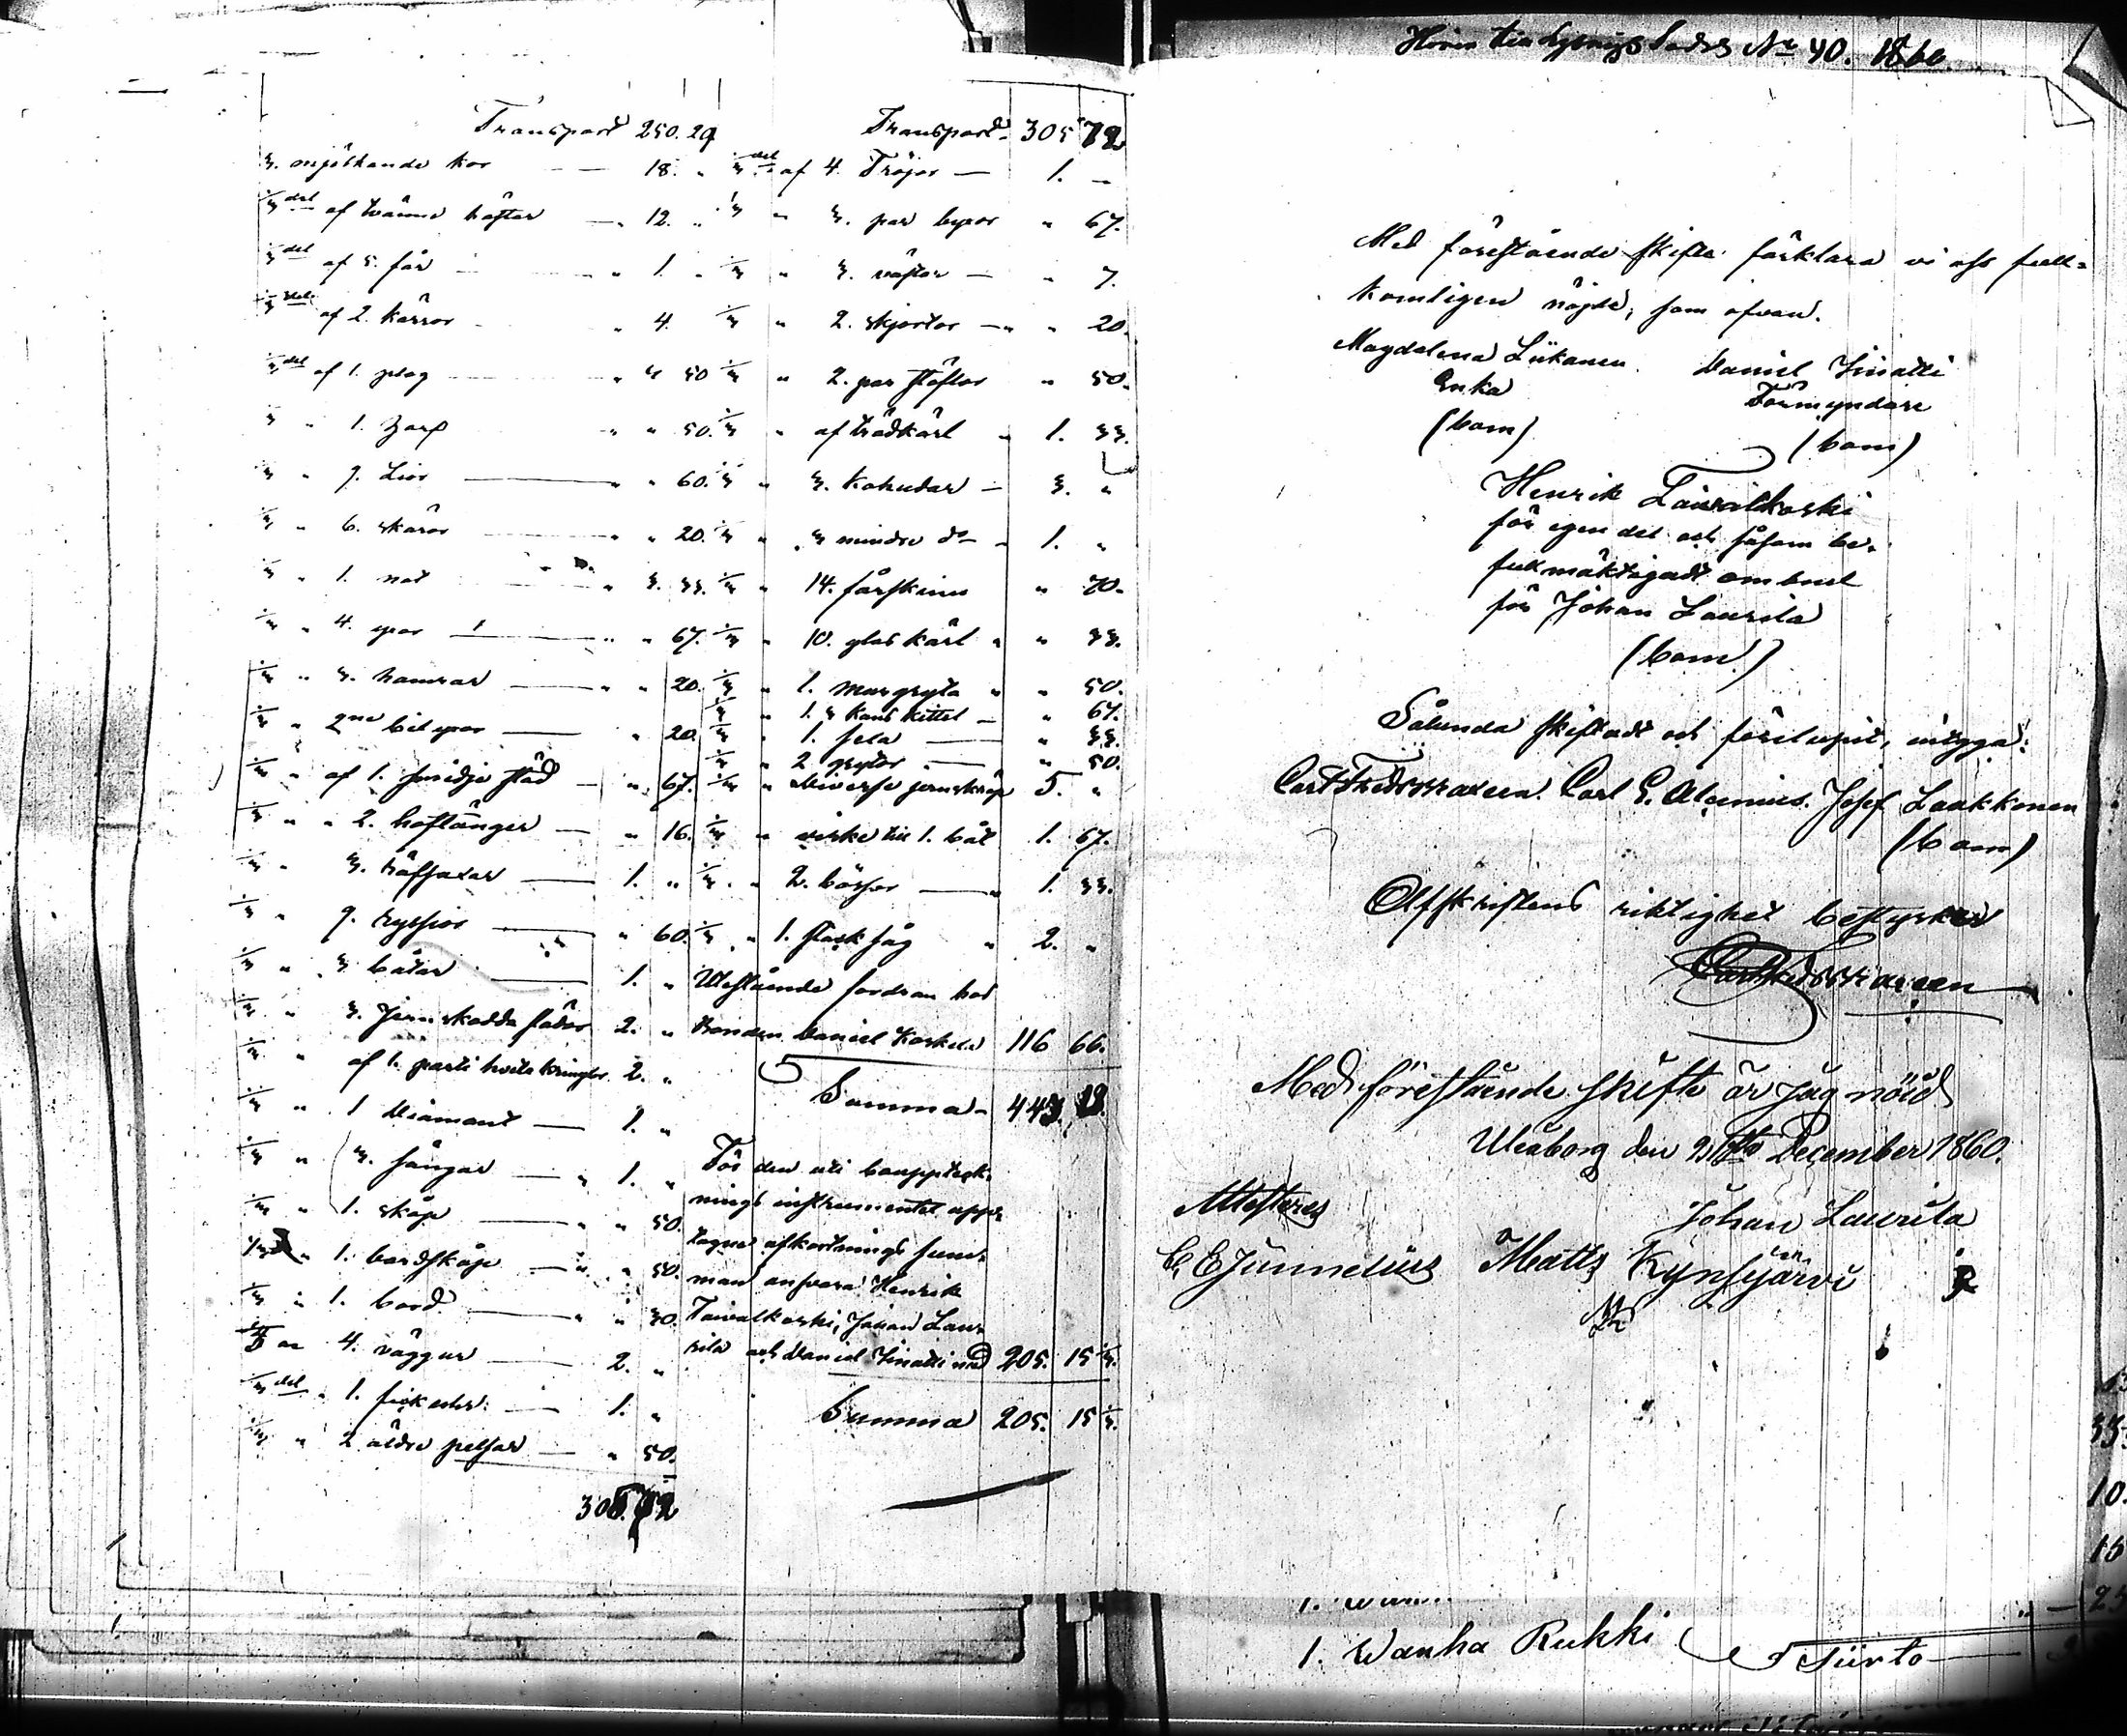 Transport 250. 29
3. mjölkande kor — 18. "
1/3 del af tvänne hästar — 12. "
1/3 del af 5. får — " 1. "
1/3 del af 2. kärror — " 4.
1/3 del af 1. plog — " " 50
1/3 " 1. harf — " " 50.
1/3 " 9. Liar — " " 60.
1/3 " 6. skäror — " " 20.
1/3 " 1. not — " 3. 33.
1/3 " 4. yxor — " " 67.
1/3 " 3. hamrar — " " 20.
1/3 " 2ne bilyxor — " 20.
1/3 " af 1. smidje städ — " 67.
1/3 " " 2. hoftänger — " 16.
1/3 " 3. — 1. "
1/3 " 9. ryssjor — " 60.
1/3 " 3 båtar — 1. "
1/3 " 3. Jernskodda slädar 2. "
1/3 " af 1. parti 2. "
1/3 " 1 Diamant — 1. "
1/3 " 3. sängar — " 1. "
1/3 " 1. skåp — " " 50.
1/3 " 1. bordskåp — " " 50.
1/3 " 1. bord. — " " 30.
4. väggur — 2. "
1/3 del " 1. fickur. — 1. "
1/3 " 2 äldre pelsar — " 50.
305. 72
Transport 305 72
1/3 del af 4. Tröjor — 1. —
1/3 " 3. par byxor " 67.
1/3 " 3. västar — " 7.
1/3 " 2. skjortor — " " 20.
1/3 " 2. par stöflor " 50.
1/3 " af trädkärl " 1. 33.
1/3 " 3. kohudar — 3. "
1/3 " 3 mindre do — 1. "
1/3 " 14. fårskinn " 70.
1/3 " 10. glas kärl " " 33.
1/3 " 1. murgryta " " 50.
1/3 " 1. kittel — " 67.
1/3 " 1. sela — " 33.
1/3 " 2 grytor — " 50.
1/3 " Diverse jernskräp 5. "
1/3 " virke till 1. båt 1. 67.
1/3 " 2. bössor — " 1. 33.
1/3 " 1. stocksåg " 2. "
Utestående fordran hos
Bonden Daniel Koskela 116 66.
Summa — 443. 18
För den uti bouppteck-
nings instrumentet upp-
tagne afkortnings sum-
man ansvara Henrik
Taivalkoski, Johan Lau-
rila och Daniel Sinatti med 205. 15 1/3.
Summa 205. 15 1/3.
Hörer till No 40. 1860
Med förestående skifte förklara vi oss full-
komligen nöjde, som ofvan.
Magdalena Liikanen. Daniel Sinatti
Enka Förmyndare
(bom) (bom)
Henrik Taivalkoski
för egen del och såsom be-
fullmäktigadt ombud
för Johan Laurila
(bom)
Sålunda skiftadt och förelupit, intyga:
Carl Fredr Carl E. Alcenius. Josef Laakkonen
(bom)
Afskriftens riktighet bestyrker
Carl Fredr
Med förestående skifte är jag nöid
Uleåborg den December 1860.
Johan Laurila
Attesteras
C. E Junnelius Matts Kynsijärvi
1. Wanha Rukki Siirto —